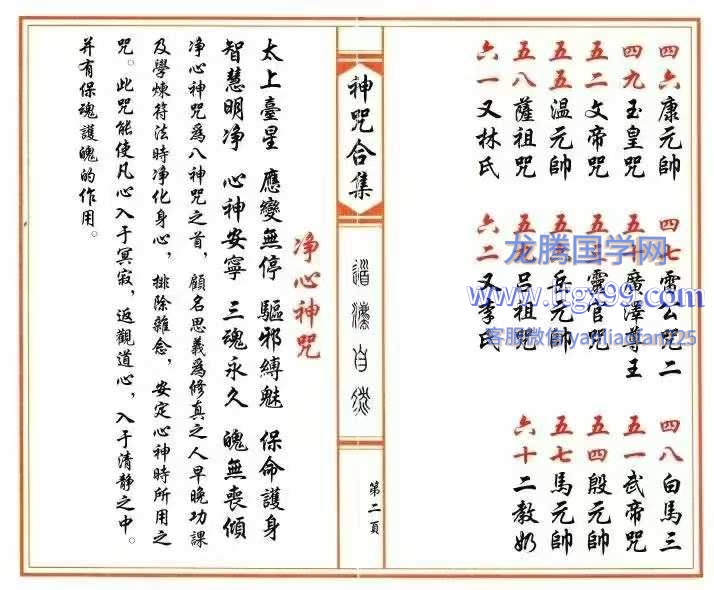 四六康元帥 四七雷公咒二 四八白馬三
四九玉皇咒 五十廣澤尊王 五一武帝咒
五二文帝咒 五三靈官咒 五四殷元帥
五五温元帥 五六岳元帥 五七馬元帥
五八薩祖咒 五九吕祖咒 六十二教奶
六一又林氏 六二又李氏
神咒合集
道灋自然
第二頁
净心神咒
太上臺星 應變無停 驅邪縛魅 保命護身
智慧明净 心神安寧 三魂永久 魄無喪傾
净心神咒爲八神咒之首，顧名思義爲修真之人早晚功課
及學煉符法時净化身心，排除雜念，安定心神時所用之
咒。此咒能使凡心入于冥寂，返觀道心，入于清静之中。
并有保魂護魄的作用。
龙腾国学网
www.ltgx99.com
客服微信